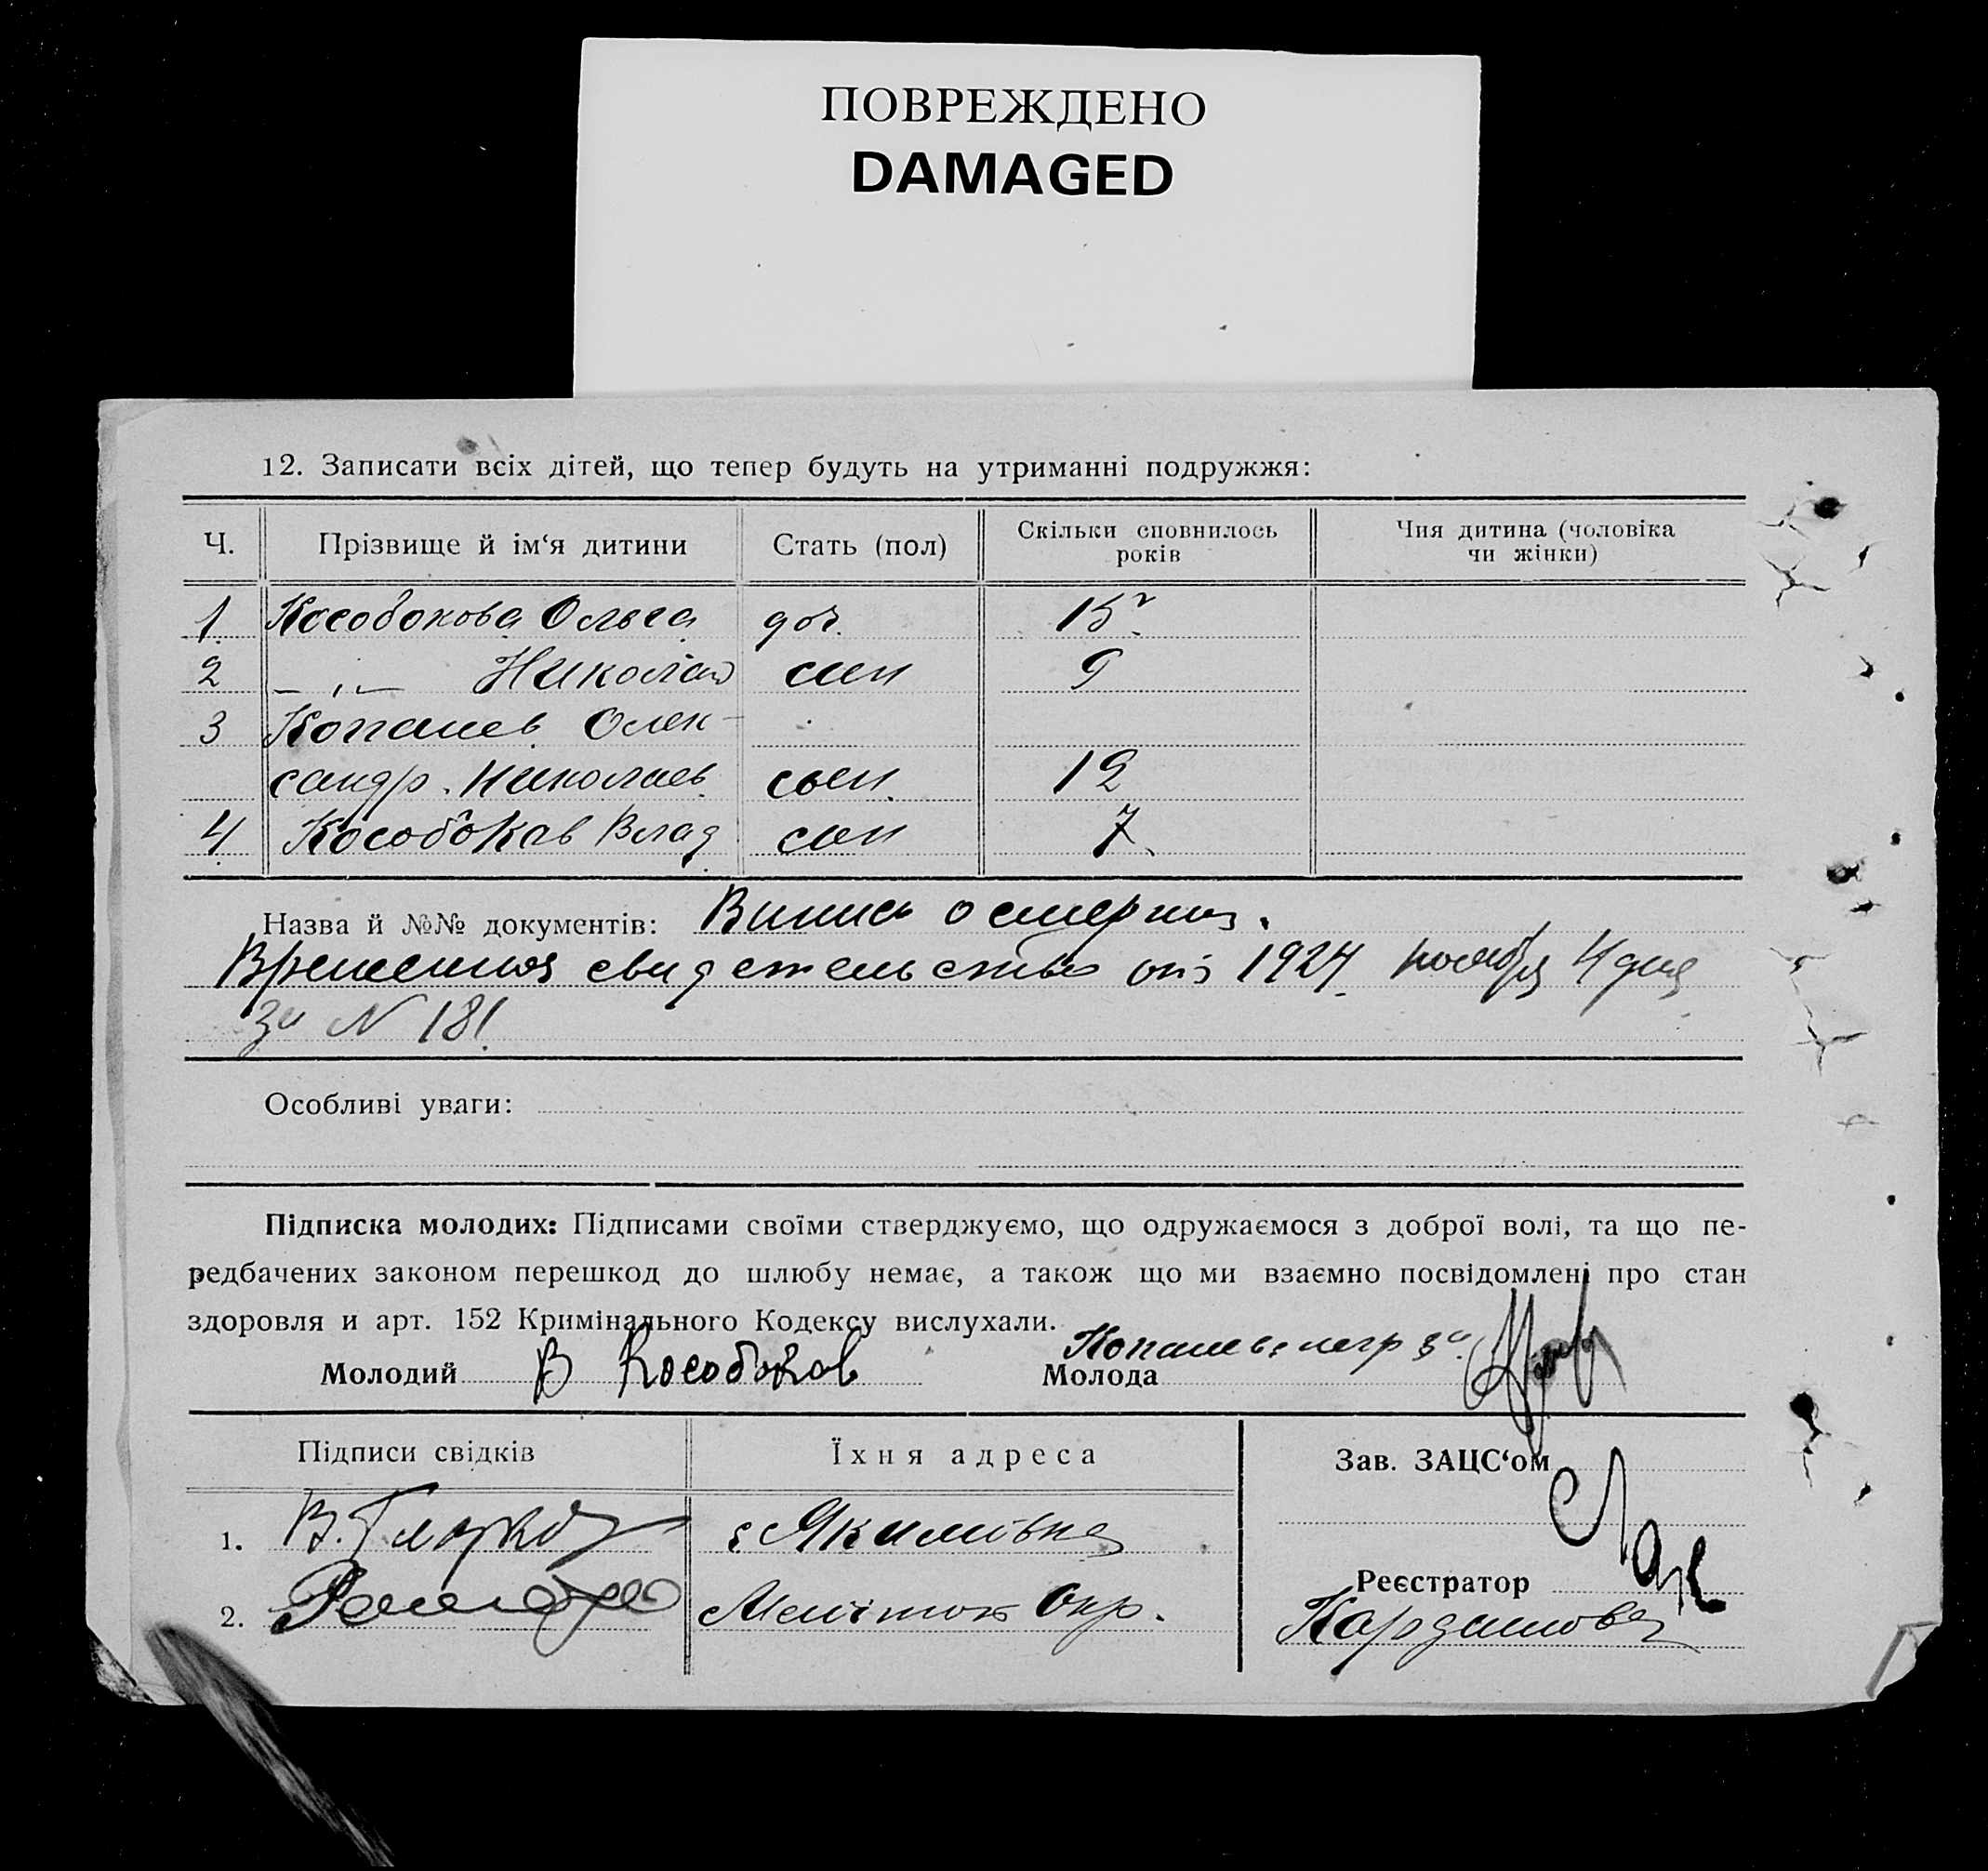 ПОВРЕЖДЕНО
DAMAGED
12. Записати всіх дітей, що тепер будуть на утриманні подружжя:
Ч. Прізвище й ім‘я дитини Стать (пол) Скільки сповнилось років Чия дитина (чоловіка чи жінки)
1. Кособокова Ольга доч. 15
2 — „ — Николай син 9
3 Копанев Олек-
сандр. Николаев. сын. 12
4 Кособоков Влад сын 7
Назва й №№ документів: Випись о смерти.
Временная свидетельство от 1924 ноября 4 дня
за N 181.
Особливі уваги:
Підписка молодих: Підписами своїми стверджуємо, що одружаємося з доброї волі, та що пе-
редбачених законом перешкод до шлюбу немає, а також що ми взаємно посвідомлені про стан
здоровля и арт. 152 Кримінального Кодексу вислухали.
Молодий В Кособоков Молода
Підписи свідків Їхня адреса Зав. ЗАЦС‘ом
1. с Якимівка
Реєстратор
2. Меліток Окр.